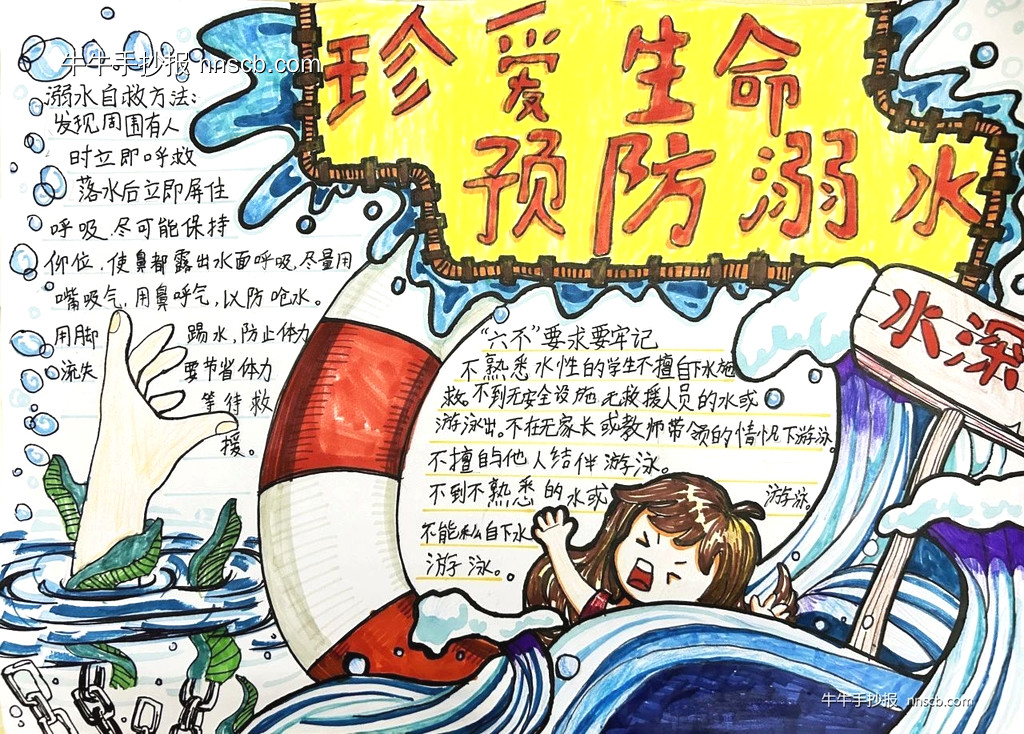 牛牛手抄报 nnscb.com
珍爱生命
预防溺水
溺水自救方法:
发现周围有人
时立即呼救
落水后立即屏住
呼吸.尽可能保持
仰位,使鼻都露出水面呼吸,尽量用
嘴吸气,用鼻呼气,以防呛水。
用脚 踢水,防止体力
流失 要节省体力
等待救
援。
“六不”要求要牢记
不熟悉水性的学生不擅自下水施
救。不到无安全设施,无救援人员的水或
游泳出.不在无家长或教师带领的情况下游泳.
不擅自与他人结伴游泳。
不到不熟悉的水或 游泳。
不能私自下水
游泳。
水深
牛牛手抄报 nnscb.com